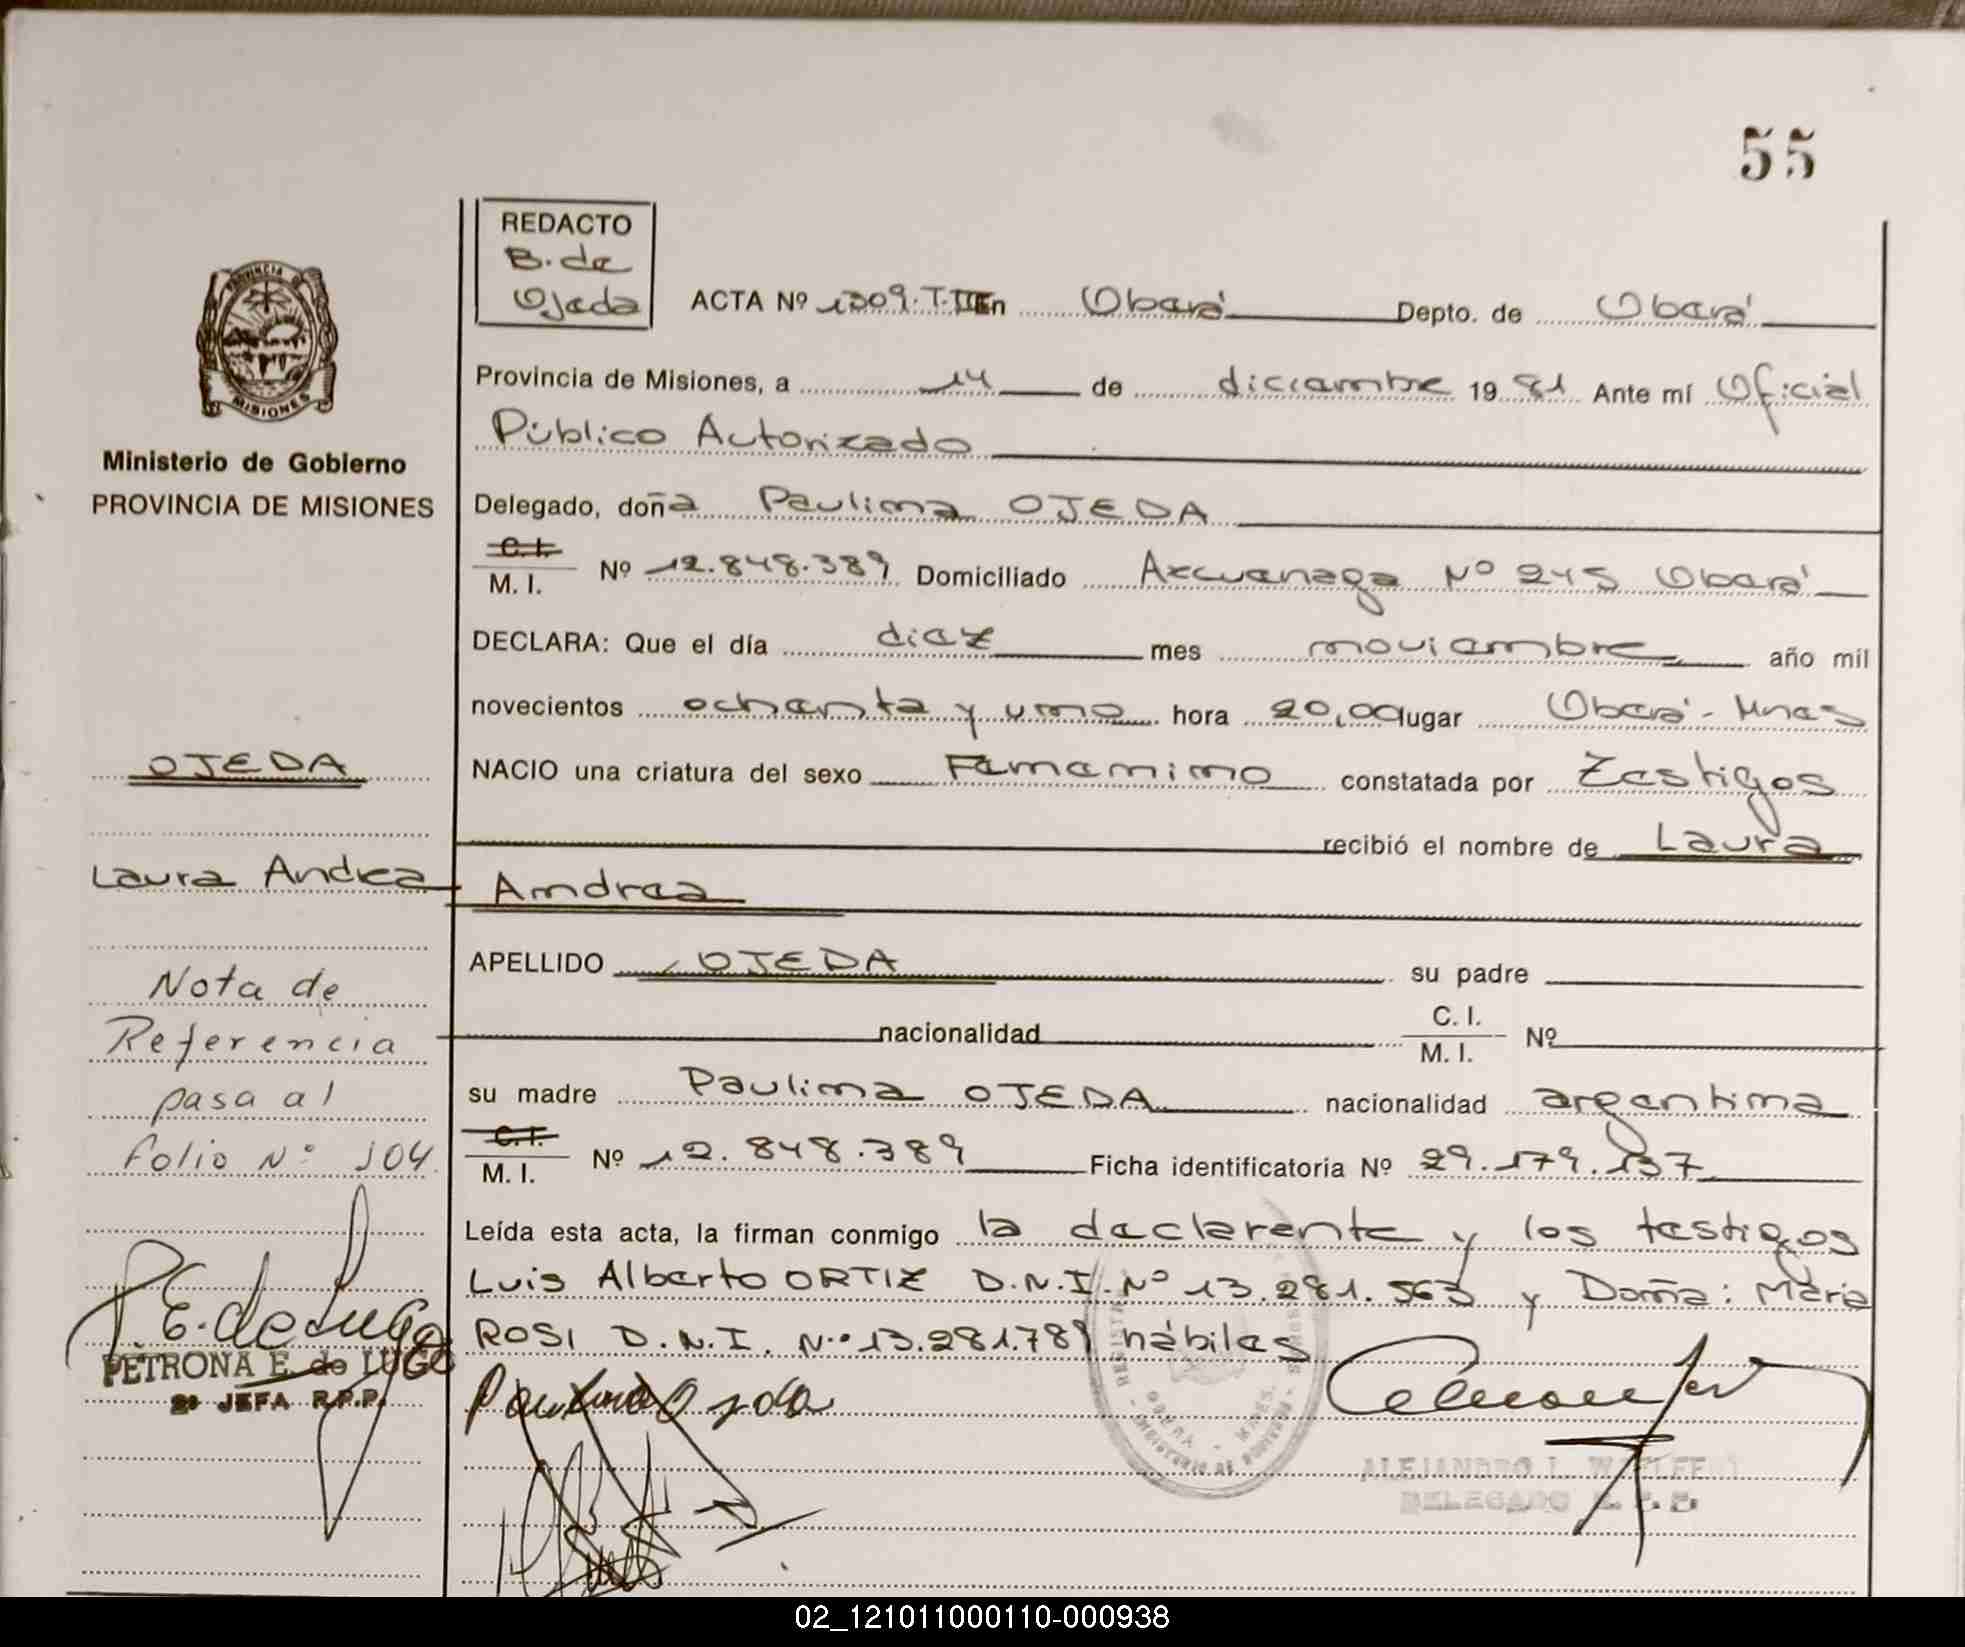 55
REDACTO
B. de
Ojeda
ACTA Nº 1309.T.III En Oberá Depto. de Oberá
PROVINCIA DE
MISIONES
Provincia de Misiones, a 14 de diciembre 19 81 Ante mí Oficial
Público Autorizado
Ministerio de Gobierno
PROVINCIA DE MISIONES
Delegado, doña Paulina OJEDA
C. I.
M. I. Nº 12.848.389 Domiciliado Azcuenaga Nº 245 Oberá
DECLARA: Que el día diez mes noviembre año mil
novecientos ochenta y uno hora 20,00 lugar Oberá - Mnes
OJEDA
NACIO una criatura del sexo Femenino constatada por Testigos
recibió el nombre de Laura
Laura Andrea
Andrea
APELLIDO OJEDA su padre
nacionalidad C. I.
M. I. Nº
su madre Paulina OJEDA nacionalidad argentina
C. I.
M. I. Nº 12.848.389 Ficha identificatoria Nº 29.179.137
Nota de
Referencia
pasa al
folio Nº 104
Leída esta acta, la firman conmigo la declarente y los testigos
Luis Alberto ORTIZ D.N.I. Nº 13.281.563 y Doña: María
ROSI D.N.I. Nº 13.281.789 hábiles
P.E. de Lugo
PETRONA E. de LUGO
2ª JEFA R.P.P.
Paulina Ojeda
OBERA - MNES.
ALEJANDRO L.
DELEGADO
02_121011000110-000938